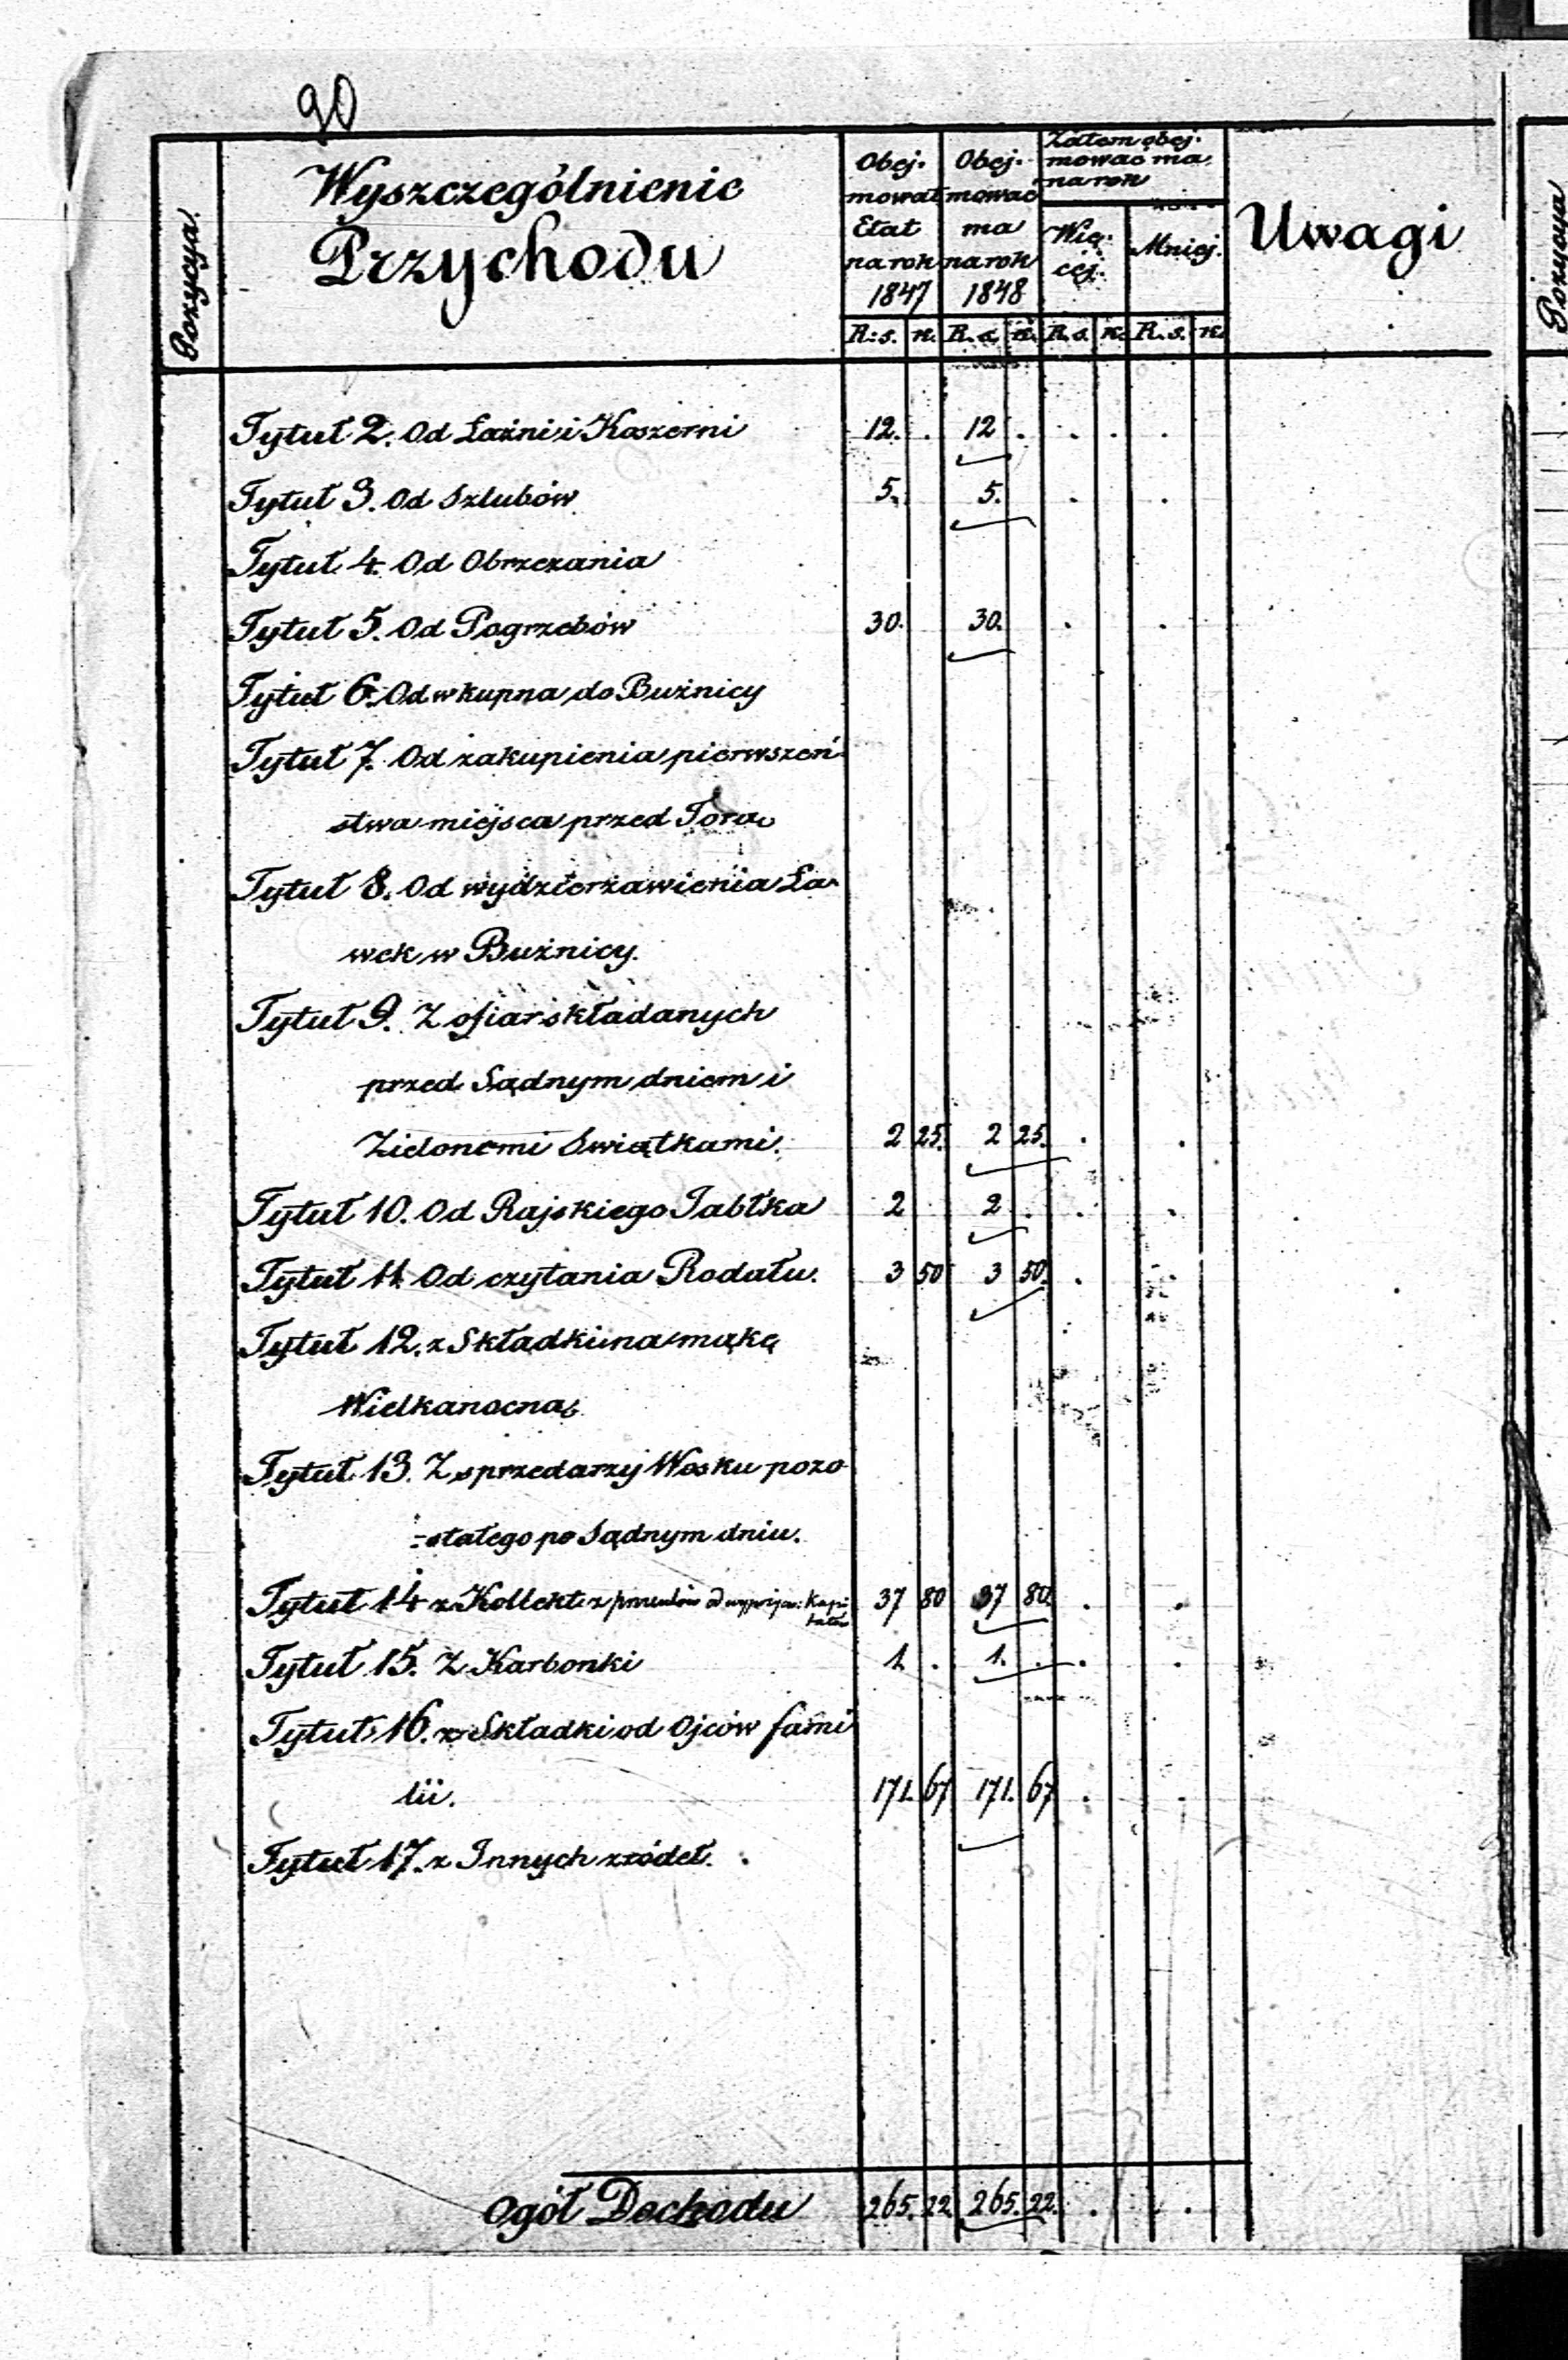 90
Pozycya.
Wyszczególnienie
Przychodu
Obej-
mował
Etat
na rok
1847
Obej-
mować
ma
na rok
1848
Zatem obej-
mować ma
na rok
Wię-
cej.
Mniej.
Uwagi
R. s. k. R. s. k. R. s. k. R. s. k.
Tytuł 2. Od Łaźni i Koszerni 12. . 12 . . . .
Tytuł 3. Od Szlubów 5. 5. . .
Tytuł 4. Od Obrzezania
Tytuł 5. Od Pogrzebów 30. 30. . .
Tytuł 6. Od wkupna do Bużnicy
Tytuł 7. Od zakupienia pierwszeń-
stwa miejsca przed Torą
Tytuł 8. Od wydzierzawienia Ła-
wek w Bużnicy.
Tytuł 9. Z ofiar składanych
przed Sądnym dniem i
Zielonemi Swiątkami. 2 25. 2 25. . .
Tytuł 10. Od Rajskiego Jabłka 2 2 . . .
Tytuł 11. Od czytania Rodału. 3 50 3 50. . .
Tytuł 12. z Składki na mąkę
Wielkanocną
Tytuł 13. Z sprzedarzy Wosku pozo
-stałego po Sądnym dniu.
Tytuł 14 z Kollekt z procentów od Kapi-
tałów 37 80 37 80. . .
Tytuł 15. Z Karbonki 1. . 1. . . .
Tytuł 16. z Składki od Ojców fami
lii. 171. 67 171. 67 . .
Tytuł 17. z Innych zródeł.
Ogół Dochodu 265. 22 265. 22. . .
Pozycya